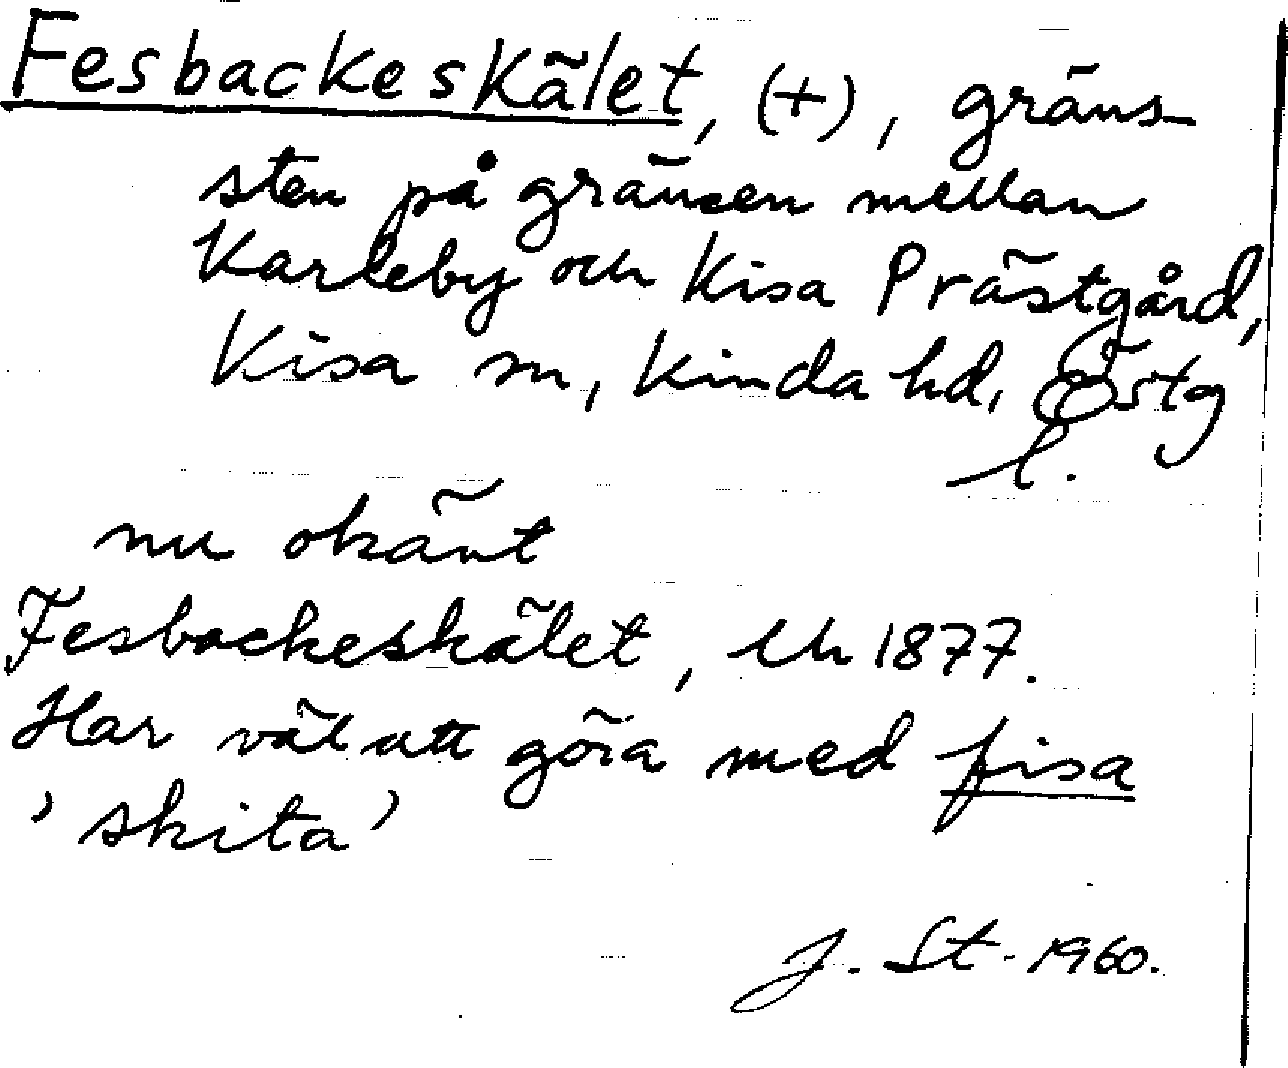 Fesbackeskälet, (+), gräns-
sten på gränsen mellan
Karleby och Kisa Prästgård,
Kisa sn, Kinda hd, Östg
l.
nu okänt
Fesbackeskälet, Uk 1877.
Har väl att göra med fisa
'skita'
J. St. 1960.